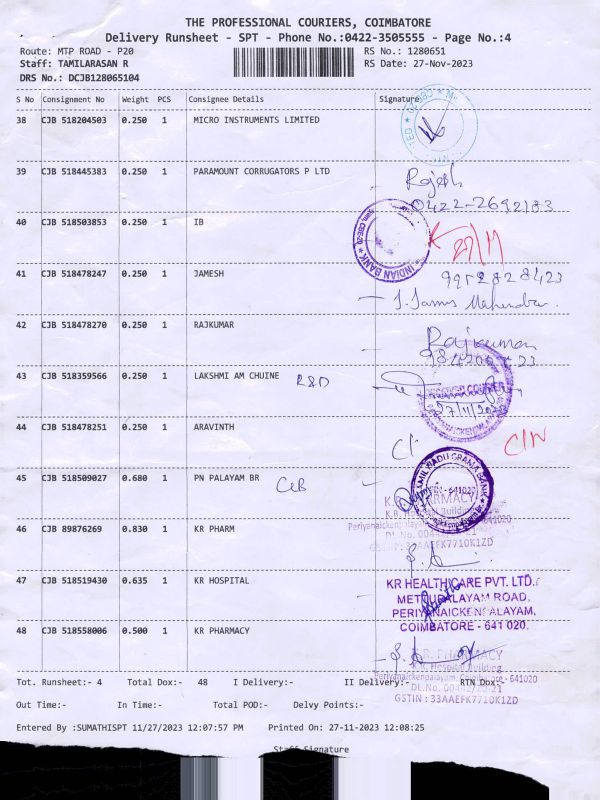 THE PROFESSIONAL COURIERS, COIMBATORE
Delivery Runsheet - SPT - Phone No.:0422-3505555 - Page No.:4
Route: MTP ROAD - P20 RS No.: 1280651
Staff: TAMILARASAN R RS Date: 27-Nov-2023
DRS No.: DCJB128065104
S No Consignment No Weight PCS Consignee Details Signature
38 CJB 518204503 0.250 1 MICRO INSTRUMENTS LIMITED
39 CJB 518445383 0.250 1 PARAMOUNT CORRUGATORS P LTD
Rajesh
0422-2692183
40 CJB 518503853 0.250 1 IB
INDIAN BANK
27/11
41 CJB 518478247 0.250 1 JAMESH
9952828423
J. James Mahendra.
42 CJB 518478270 0.250 1 RAJKUMAR
Rajkumar
43 CJB 518359566 0.250 1 LAKSHMI AM CHUINE R&D
27/11/2023
44 CJB 518478251 0.250 1 ARAVINTH
45 CJB 518509027 0.680 1 PN PALAYAM BR
TAMIL NADU GRAMA BANK
641020
K.R. PHARMACY
K.R. Hospital Building
GSTIN : 33AAEFK7710K1ZD
46 CJB 89876269 0.830 1 KR PHARM
47 CJB 518519430 0.635 1 KR HOSPITAL
KR HEALTHCARE PVT. LTD.
METTUPALAYAM ROAD,
PERIYANAICKENPALAYAM,
COIMBATORE - 641 020.
48 CJB 518558006 0.500 1 KR PHARMACY
K.R. PHARMACY
K.R. Hospital Building
Periyanaickenpalayam, Coimbatore - 641020
GSTIN : 33AAEFK7710K1ZD
Tot. Runsheet:- 4 Total Dox:- 48 I Delivery:- II Delivery:- RTN Dox:-
Out Time:- In Time:- Total POD:- Delvy Points:-
Entered By :SUMATHISPT 11/27/2023 12:07:57 PM Printed On: 27-11-2023 12:08:25
Staff Signature